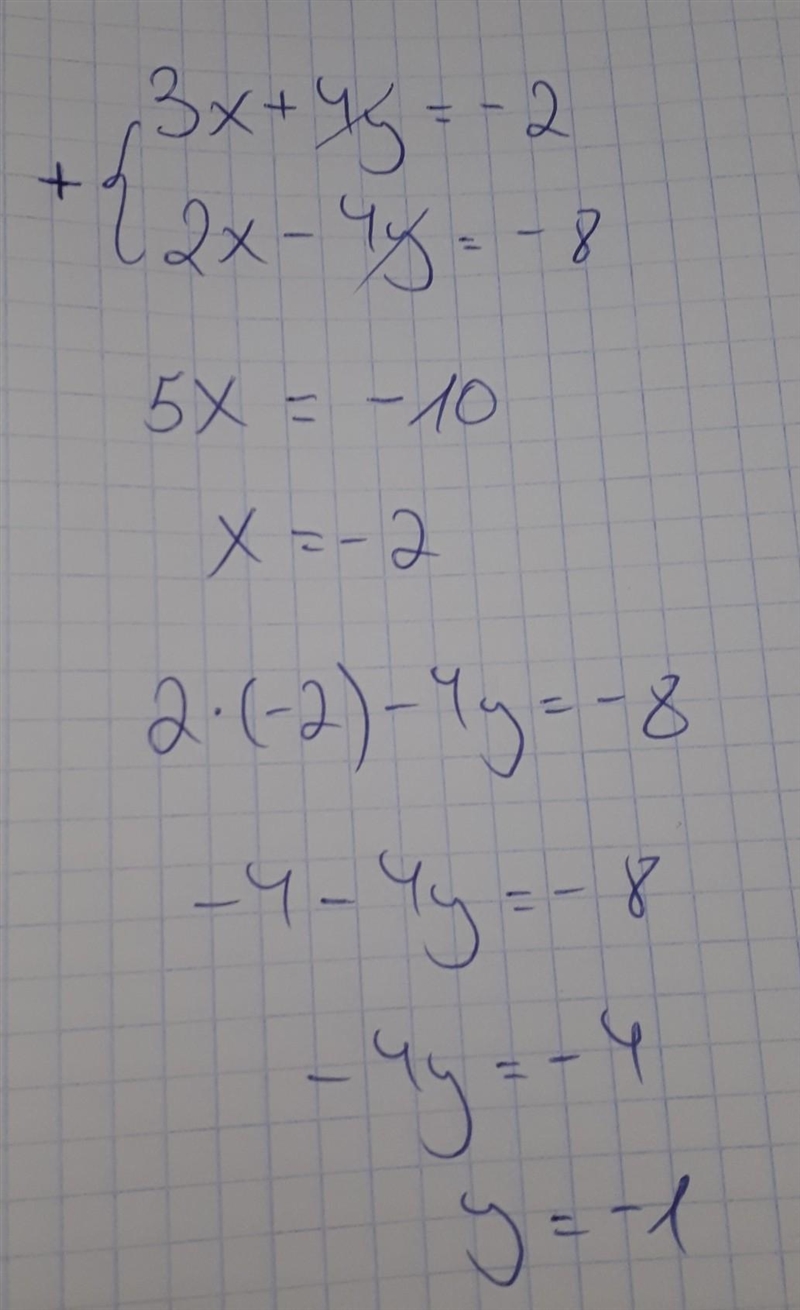 3x + 4y = - 2
+ { 2x - 4y = - 8
5x = - 10
x = - 2
2 · (-2) - 4y = - 8
- 4 - 4y = - 8
- 4y = - 4
y = - 1